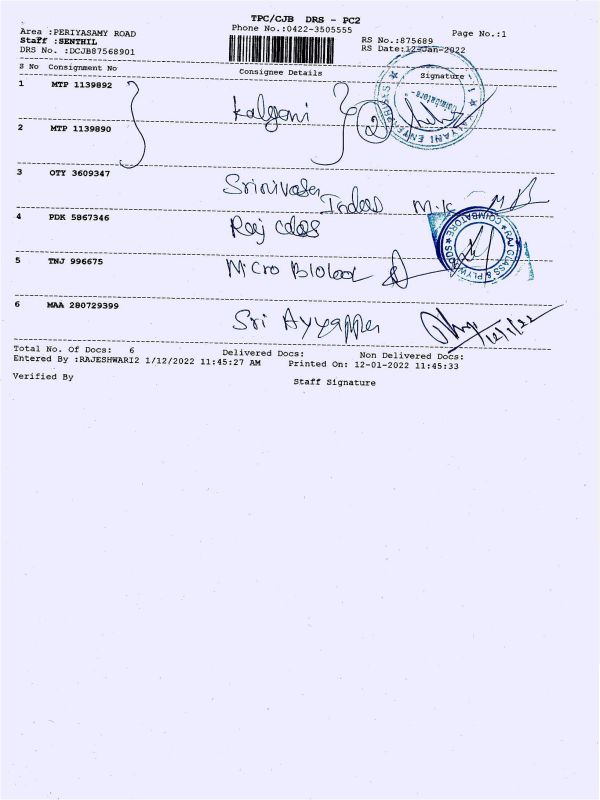 TPC/CJB DRS - PC2
Phone No.:0422-3505555
Page No.:1
Area :PERIYASAMY ROAD
Staff :SENTHIL
DRS No. :DCJB87568901
RS No.:875689
RS Date:12-Jan-2022
S No Consignment No Consignee Details Signature
1 MTP 1139892
Kalyani 2
2 MTP 1139890
3 OTY 3609347
Srinivasa Indas M.K
4 PDK 5867346
Raj
RAJ GLASS & PLYWOODS COIMBATORE
5 TNJ 996675
Micro
6 MAA 280729399
Sri Ayyappa
12/1/22
Total No. Of Docs: 6 Delivered Docs: Non Delivered Docs:
Entered By :RAJESHWARI2 1/12/2022 11:45:27 AM Printed On: 12-01-2022 11:45:33
Verified By Staff Signature